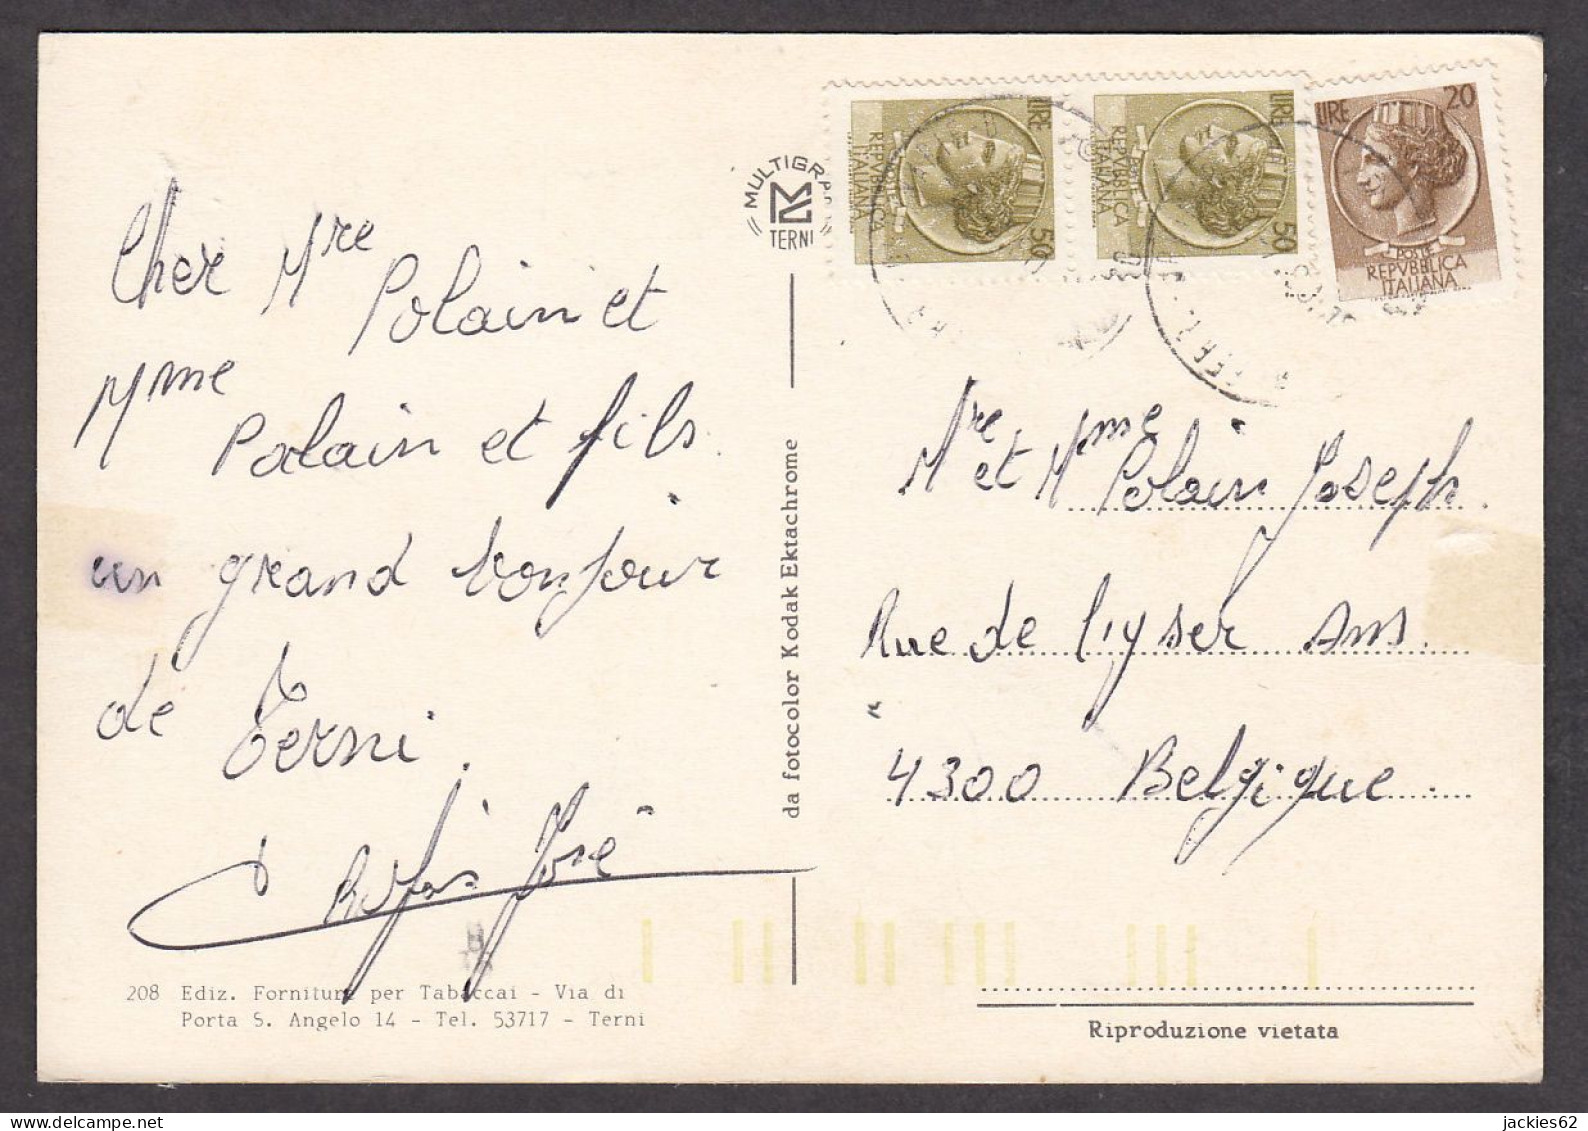 Cher Mre
Polain et
Mme
Polain et fils.
un grand bonjour
de Terni.
José
208 Ediz. Forniture per Tabaccai - Via di
Porta S. Angelo 14 - Tel. 53717 - Terni
MULTIGRA
TERNI
da fotocolor Kodak Ektachrome
LIRE 50
POSTE
REPVBBLICA
ITALIANA
LIRE 50
POSTE
REPVBBLICA
ITALIANA
LIRE 20
POSTE
REPVBBLICA
ITALIANA
Mre et Mme Polain Joseph.
Rue de l'yser Ans.
4300 Belgique.
Riproduzione vietata
jackies62